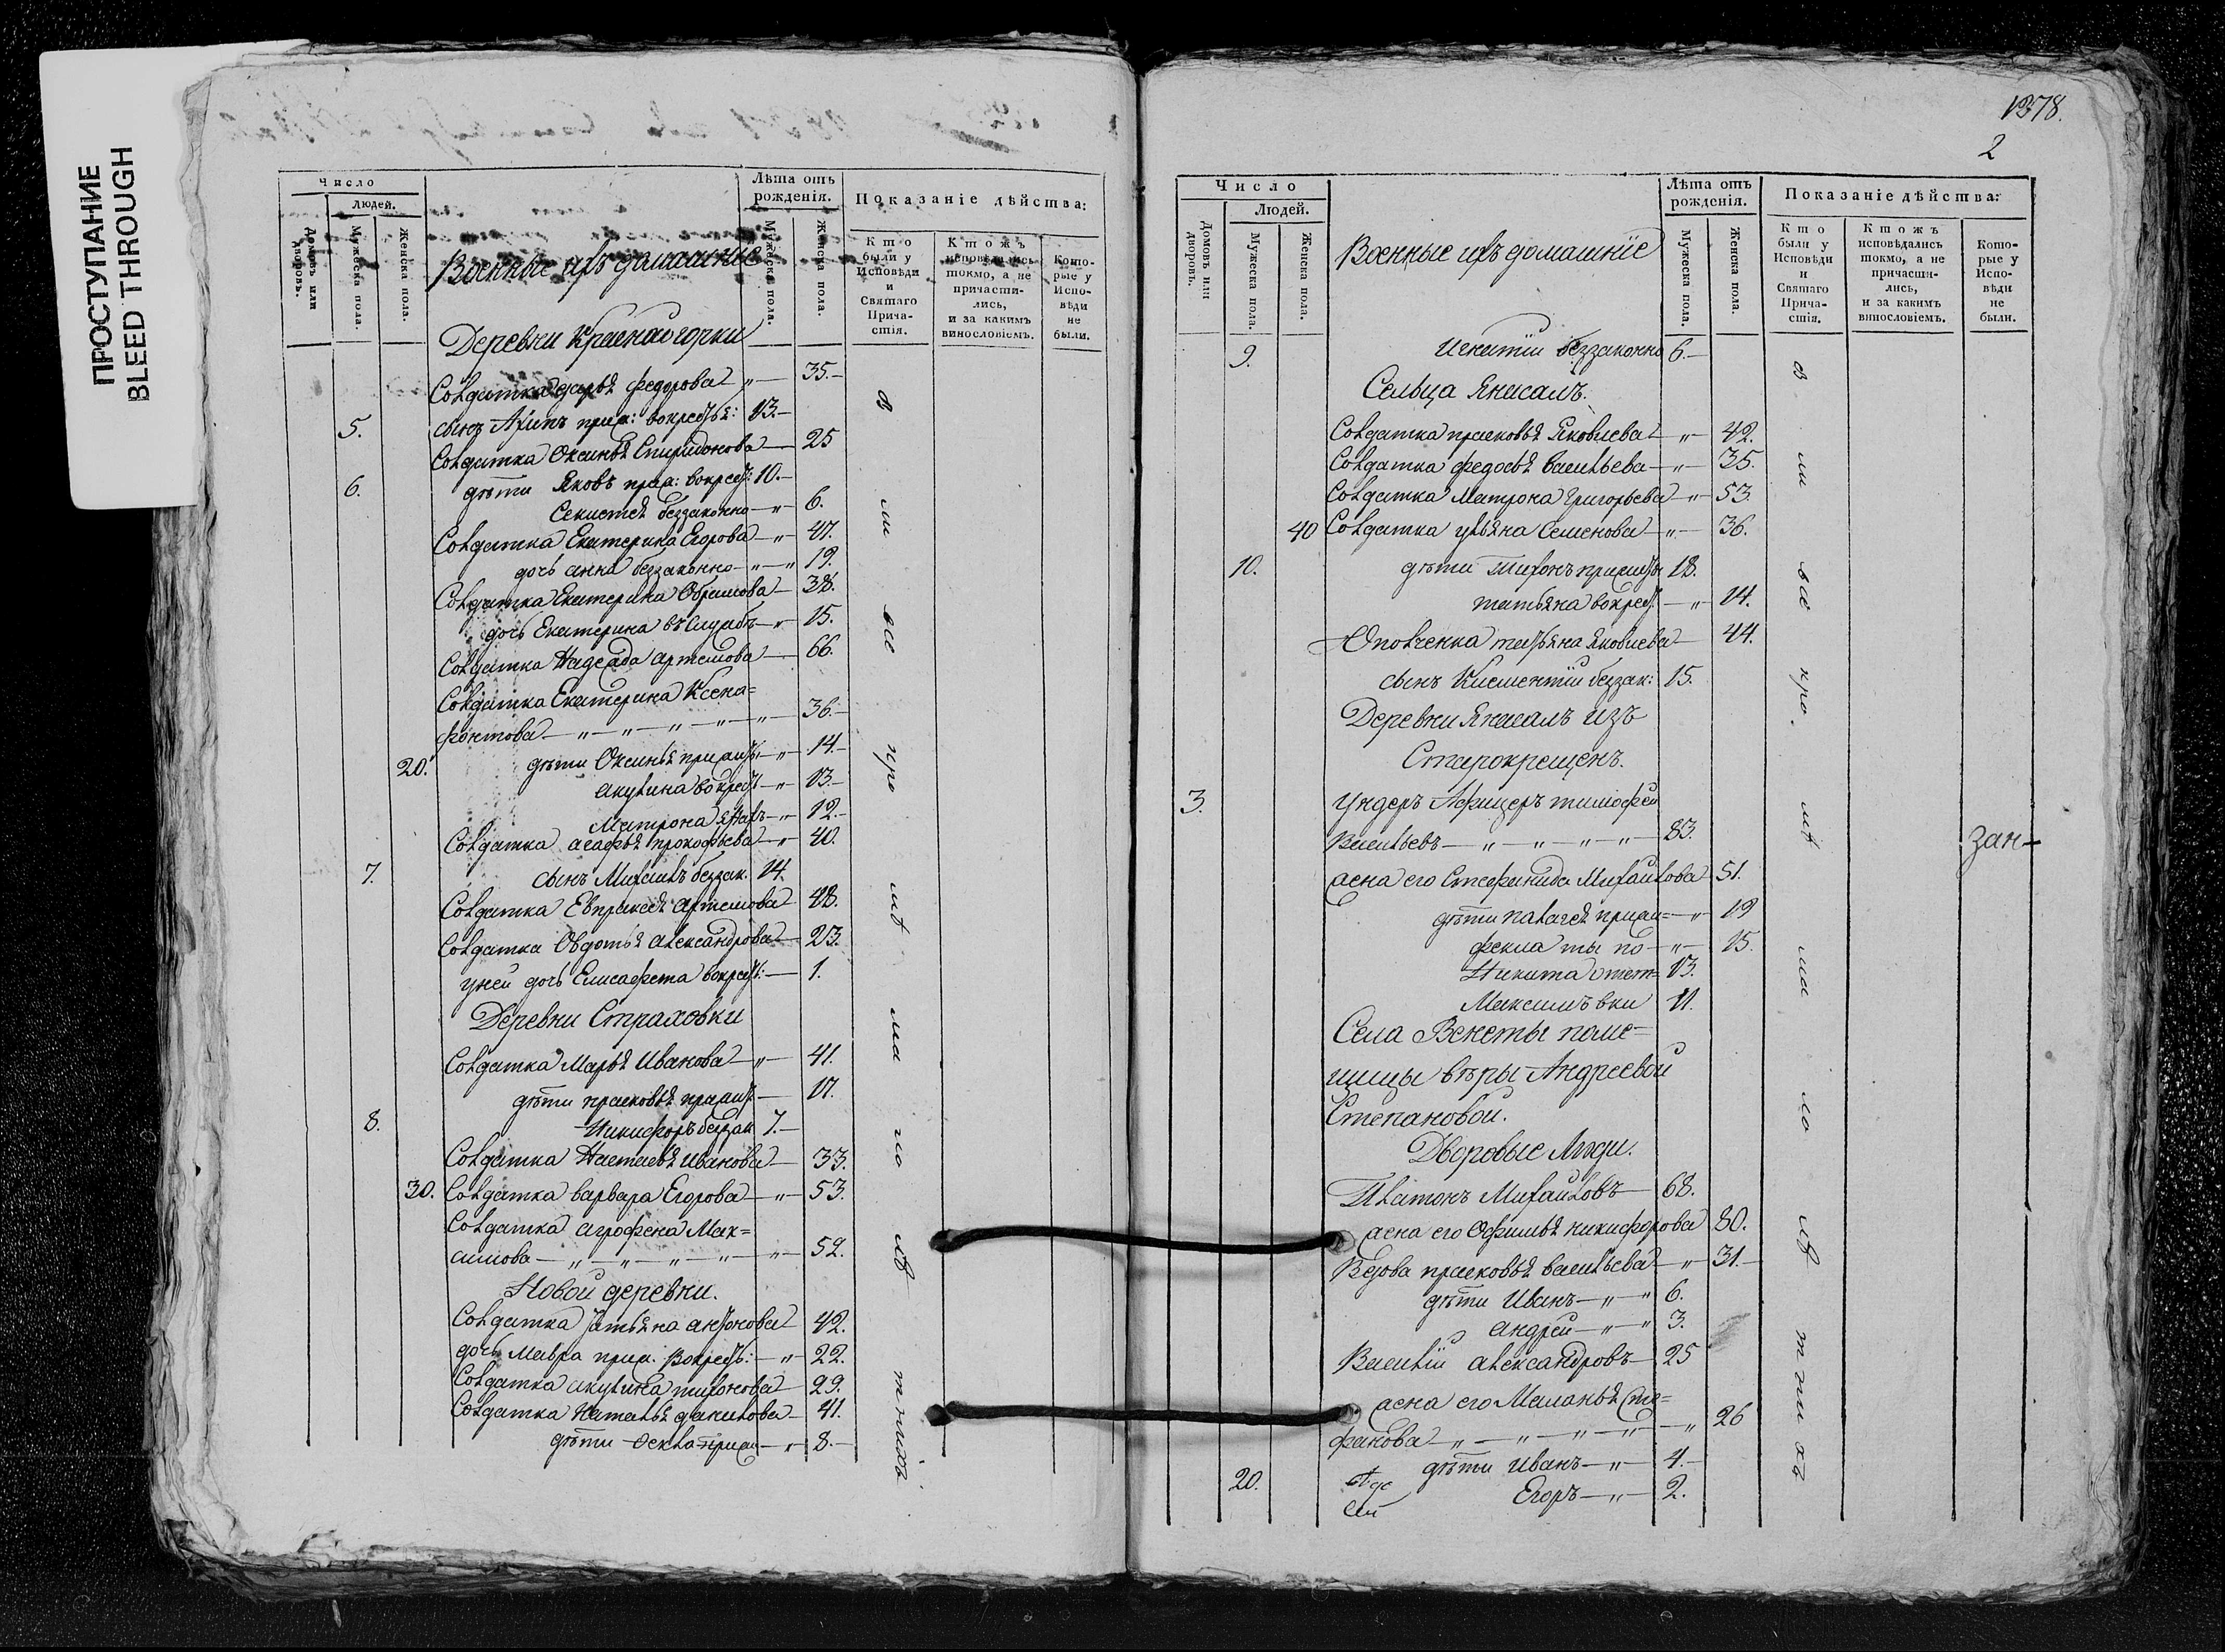 ПРОСТУПАНИЕ
BLEED THROUGH
Число
Людей.
Домовъ или дворовъ.
Мужеска пола.
Женска пола.
Военные и ихъ домашніе
Лѣта отъ рожденія.
Мужеска пола.
Женска пола.
Показаніе дѣйства:
Кто были у Исповѣди и Святаго Причастія.
Ктожъ исповѣдались токмо, а не причастились, и за какимъ винословіемъ.
Которые у Исповѣди не были.
Деревни Красной горки
Солдатка дарья федорова 35.
5. сынъ приж: вокресть: 13.
Солдатка Оксинья Спиридонова 25
6. дѣти Яковъ приж: вокрест: 10.
беззаконно 6.
Солдатка Екатерина Егорова 47.
дочь анна беззаконно 19.
Солдатка Екатерина 38.
дочь Екатерина въ Службѣ 15.
Солдатка Надежда артемова 66.
Солдатка Екатерина Ксено=
фонтова 36.
20. дѣти Оксинья прижиты 14.
акулина вокрест 13.
Матрона 12.
Солдатка агафья прокофьева 40.
7. сынъ Михаилъ беззак. 14.
Солдатка Евпраксея артемова 48.
Солдатка Овдотья александрова 23.
уней дочь Елисафета вокрест: 1.
Деревни Страховки
Солдатка Марья Иванова 41.
дѣти прасковья прижит 17.
8. Никифоръ беззак 7.
Солдатка Настасья Иванова 33.
30. Солдатка варвара Егорова 53.
Солдатка агрофена Мак=
симова 52.
Новой деревни.
Солдатка татьяна антонова 42.
дочь Мавра приж. вокресть: 22.
Солдатка акулина тихонова 29.
Солдатка наталья данилова 41.
дѣти Фекла приж 8.
1378.
2
Число
Людей.
Домовъ или дворовъ.
Мужеска пола.
Женска пола.
Военные и ихъ домашніе
Лѣта отъ рожденія.
Мужеска пола.
Женска пола.
Показаніе дѣйства:
Кто были у Исповѣди и Святаго Причастія.
Ктожъ исповѣдались токмо, а не причастились, и за какимъ винословіемъ.
Которые у Исповѣди не были.
9. Игнатій беззаконно 6.
Сельца Янасалъ.
Солдатка прасковья Яковлева 42.
Солдатка федосья васильева 35.
Солдатка Матрона Григорьева 53.
40 Солдатка ульяна Семенова 36.
10. дѣти Тихонъ прижиты 18.
татьяна вокрест 14.
татьяна Яковлева 44.
сынъ Климентій беззак: 15.
Деревни Янасалъ изъ
Старокрещенъ.
3. Ундеръ Афицеръ тимофей
Васильевъ 83. зан
жена его Стефанида Михайлова 51.
дѣти палагея приж= 19
фекла ты по 15.
Никита отст= 13.
Максимъ вки 11.
Села Венеты поме=
щицы вѣры Андреевой
Степановой.
Дворовые Люди.
Платонъ Михайловъ 68.
жена его Офимья никифорова 80.
Вдова прасковья васильева 31.
дѣти Иванъ 6.
андрей 3.
Василій александровъ 25
жена его Маланья Сте=
фанова 26
дѣти иванъ 4.
20. Егоръ 2.